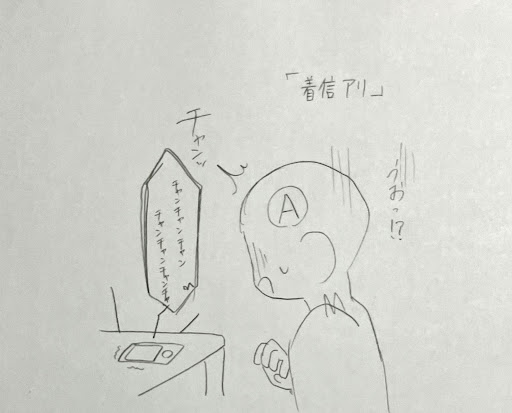 「着信アリ」
うおっ!?
A
チャンッ
チャンチャンチャン
チャンチャンチャンチャ